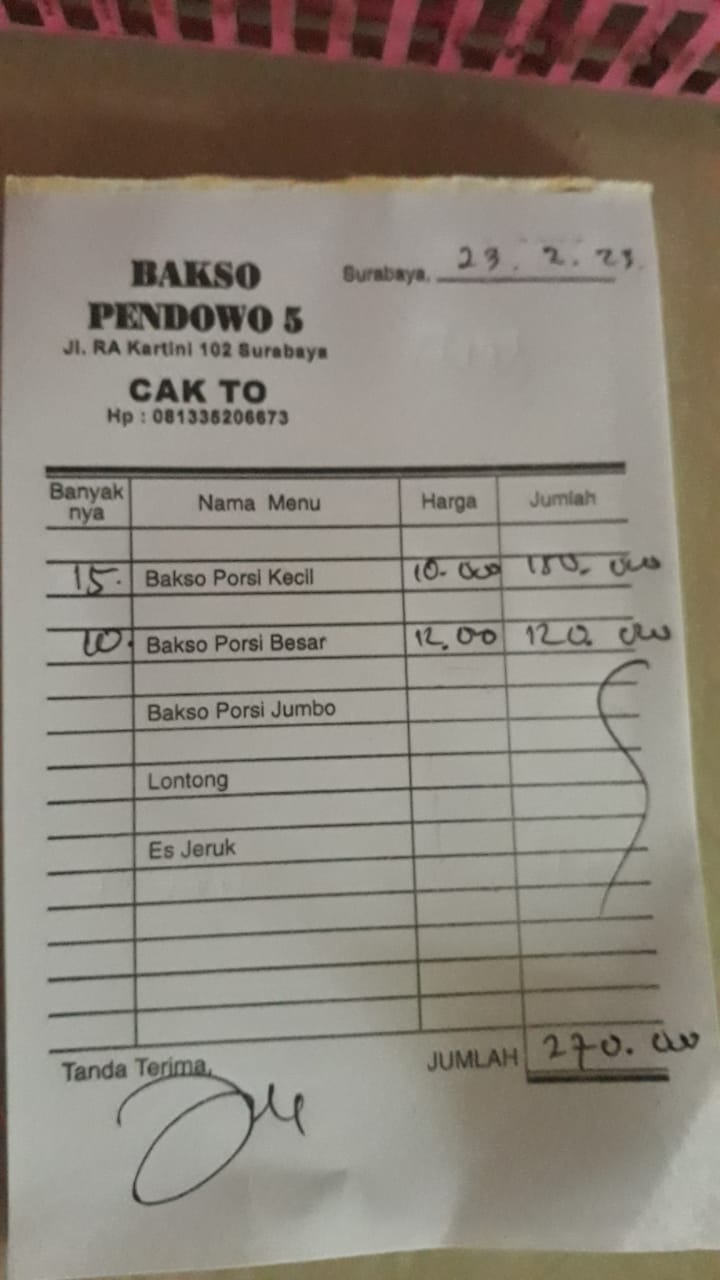 BAKSO
PENDOWO 5
Jl. RA Kartini 102 Surabaya
CAK TO
Hp : 081335206673
Surabaya, 23. 2. 23.
Banyak nya Nama Menu Harga Jumlah
15. Bakso Porsi Kecil 10.000 150.000
10. Bakso Porsi Besar 12.00 120.000
Bakso Porsi Jumbo
Lontong
Es Jeruk
Tanda Terima, JUMLAH 270.000